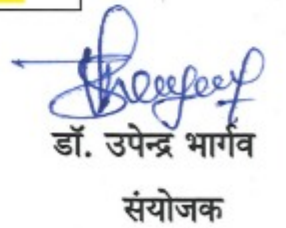 डॉ. उपेन्द्र भार्गव
संयोजक